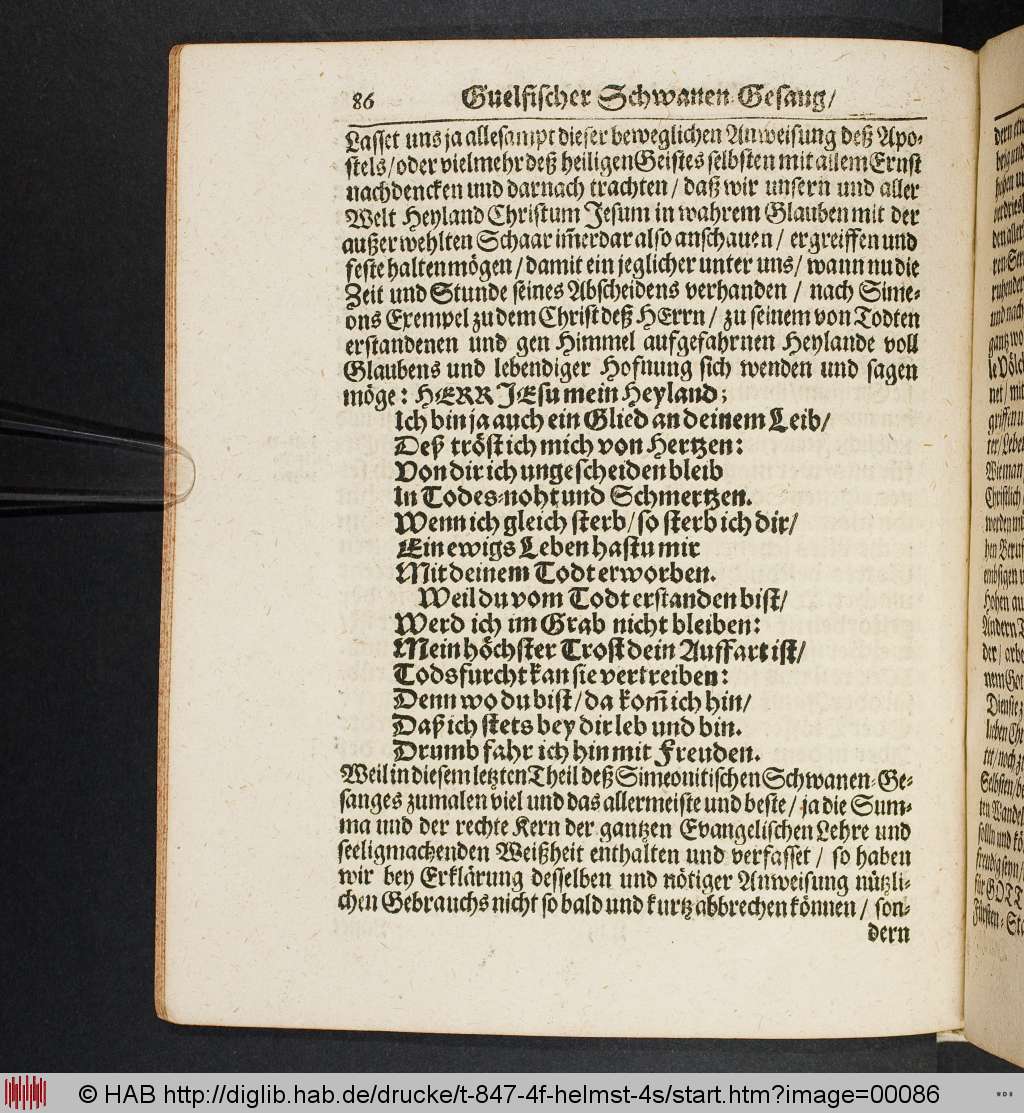 86 Guelfischer Schwanen-Gesang/
Lasset uns ja allesampt dieser beweglichen Anweisung deß Apo-
stels/oder vielmehr deß heiligen Geistes selbsten mit allem Ernst
nachdencken und darnach trachten / daß wir unsern und aller
Welt Heyland Christum Jesum in wahrem Glauben mit der
außerwehlten Schaar im̃erdar also anschauen / ergreiffen und
feste halten mögen / damit ein jeglicher unter uns / wann nu die
Zeit und Stunde seines Abscheidens verhanden / nach Sime-
ons Exempel zu dem Christ deß HErrn / zu seinem von Todten
erstandenen und gen Himmel aufgefahrnen Heylande voll
Glaubens und lebendiger Hofnung sich wenden und sagen
möge: HERR JEsu mein Heyland;
Ich bin ja auch ein Glied an deinem Leib/
Deß tröst ich mich von Hertzen:
Von dir ich ungescheiden bleib
In Todes-noht und Schmertzen.
Wenn ich gleich sterb/ so sterb ich dir/
Ein ewigs Leben hastu mir
Mit deinem Todt erworben.
Weil du vom Todt erstanden bist/
Werd ich im Grab nicht bleiben:
Mein höchster Trost dein Auffart ist/
Todsfurcht kan sie vertreiben:
Denn wo du bist/ da kom̃ ich hin/
Daß ich stets bey dir leb und bin.
Drumb fahr ich hin mit Freuden.
Weil in diesem letzten Theil deß Simeonitischen Schwanen-Ge-
sanges zumalen viel und das allermeiste und beste / ja die Sum-
ma und der rechte Kern der gantzen Evangelischen Lehre und
seeligmachenden Weißheit enthalten und verfasset / so haben
wir bey Erklärung desselben und nötiger Anweisung nützli-
chen Gebrauchs nicht so bald und kurtz abbrechen können / son-
dern
© HAB http://diglib.hab.de/drucke/t-847-4f-helmst-4s/start.htm?image=00086